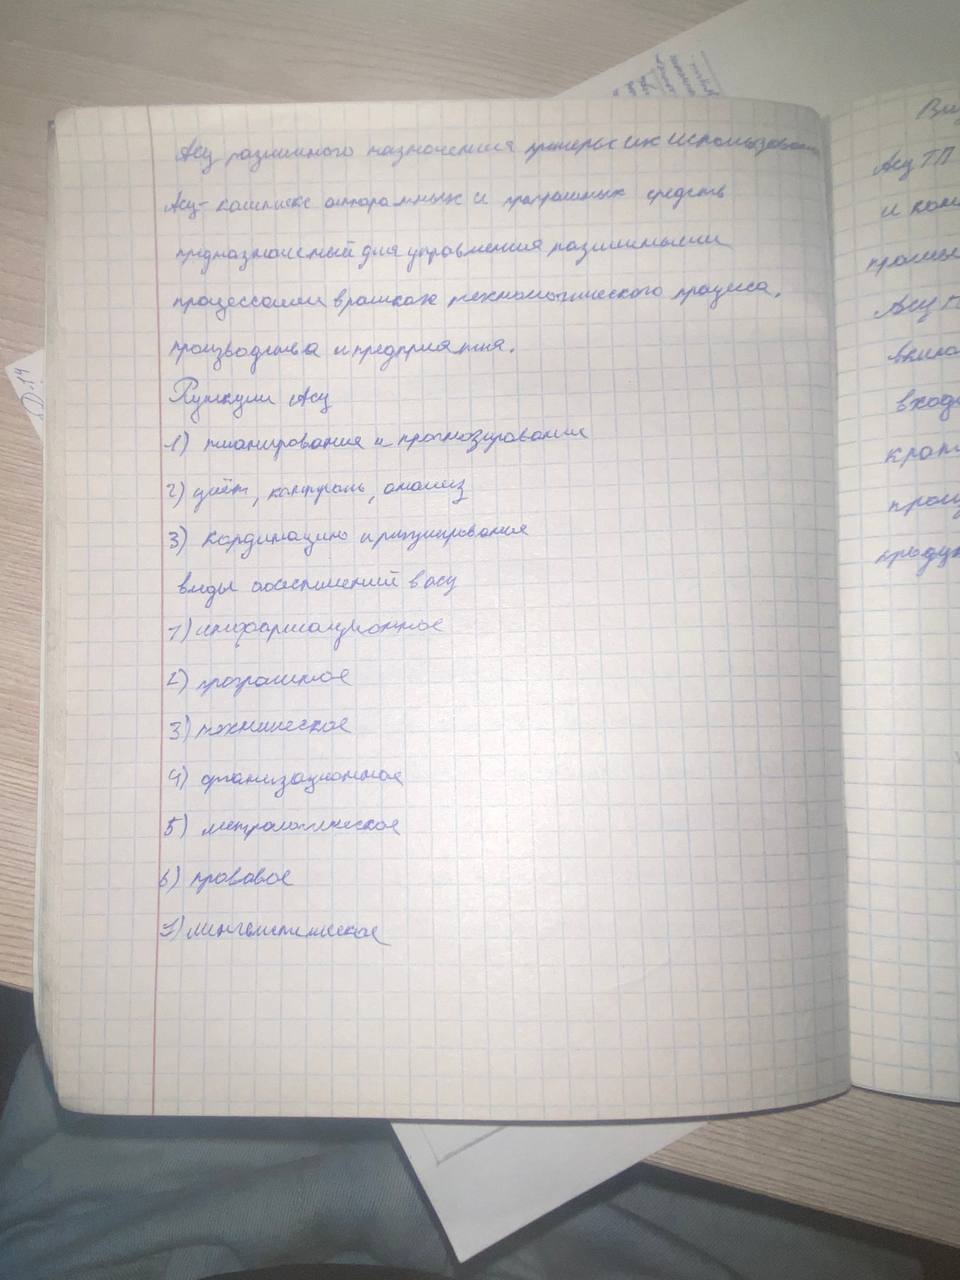 Асу различного назначения примеры их использования
Асу- комплекс аппаратных и програмных средств
предназначеный для управления различными
процессами в рамках технологического процеса,
производства и предприятия.
Функции Асу
1) планирование и прогнозирование
2) учёт, контроль, анализ
3) Кординацию и ригулирования
виды обеспичений в асу
1) информационное
2) програмное
3) техническое
4) организационное
5) метрологическое
6) правовое
7) лингвистическое
Асу ТП
и
Асу
Д-14